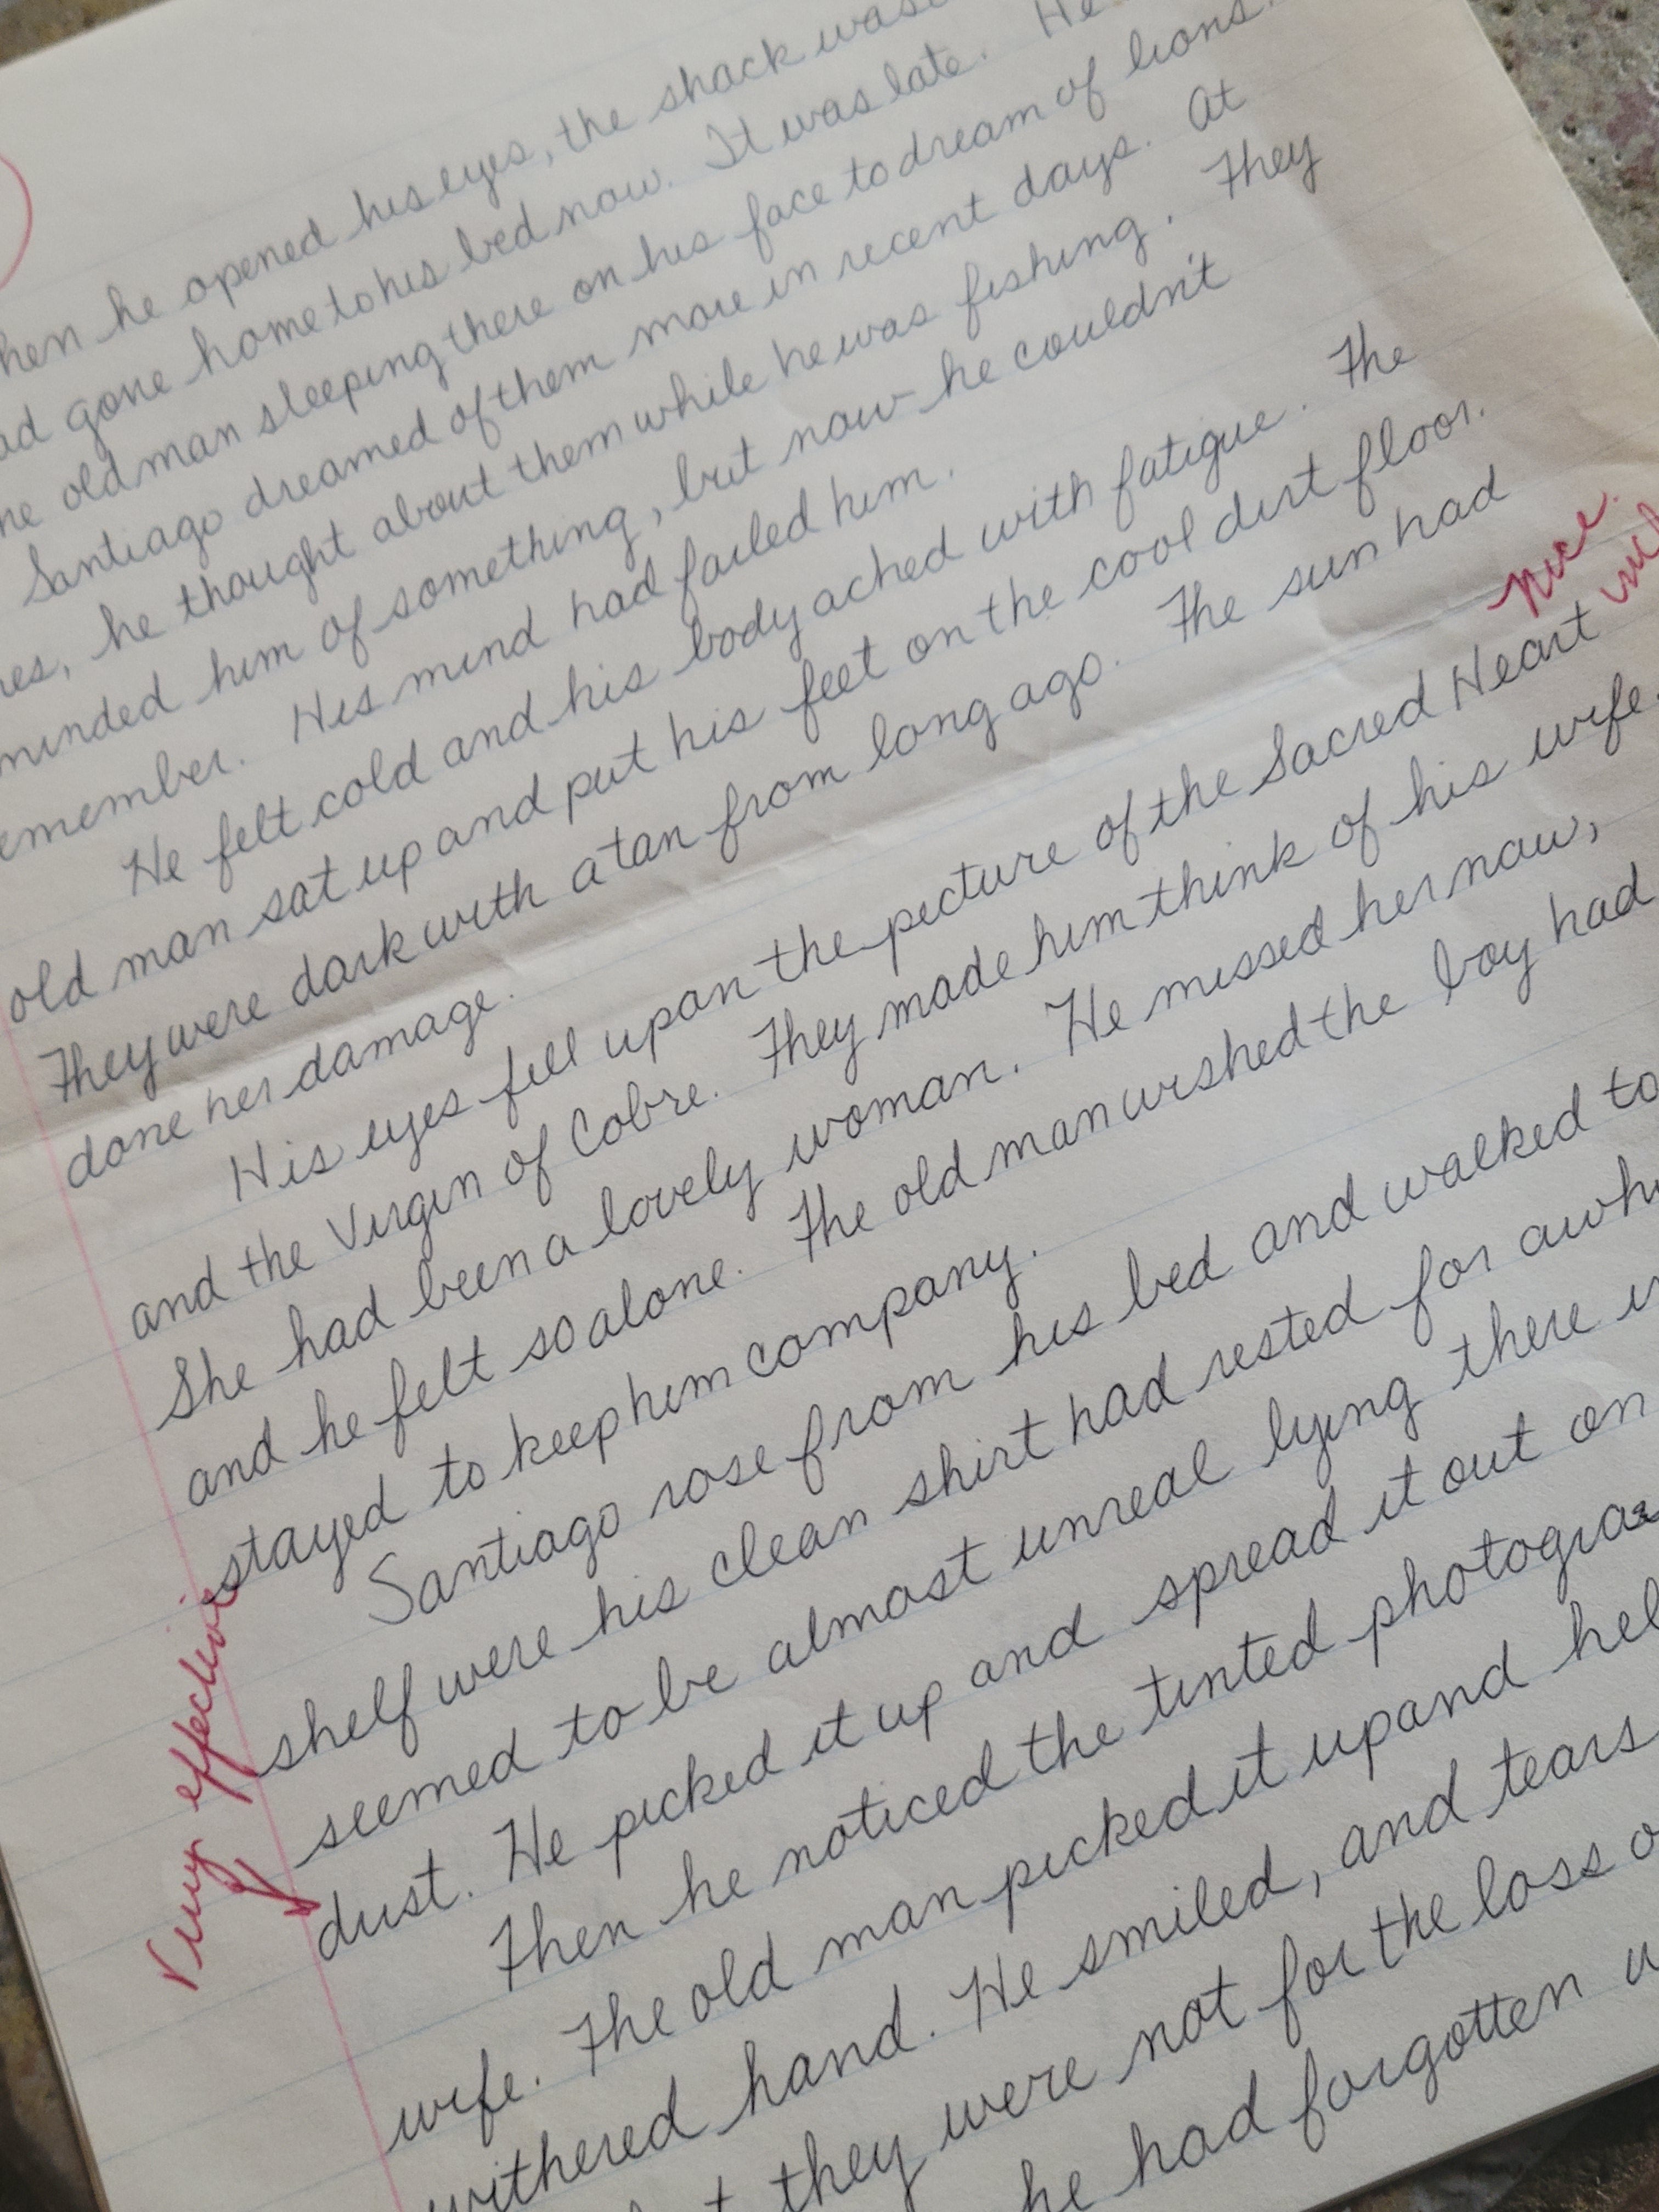 hen he opened his eyes, the shack was
ad gone home to his bed now. It was late. He
he old man sleeping there on his face to dream of lions.
Santiago dreamed of them more in recent days. At
es, he thought about them while he was fishing. They
minded him of something, but now he couldn't
emember. His mind had failed him.
He felt cold and his body ached with fatigue. The
old man sat up and put his feet on the cool dirt floor.
They were dark with a tan from long ago. The sun had
done her damage.
nice
His eyes fell upon the picture of the Sacred Heart
and the Virgin of Cobre. They made him think of his wife.
She had been a lovely woman. He missed her now,
and he felt so alone. The old man wished the boy had
stayed to keep him company.
Santiago rose from his bed and walked to
shelf were his clean shirt had rested for awhi
seemed to be almost unreal lying there i
dust. He picked it up and spread it out on
Very effective
Then he noticed the tinted photogra
wife. The old man picked it up and hel
withered hand. He smiled, and tears
they were not for the loss o
he had forgotten w